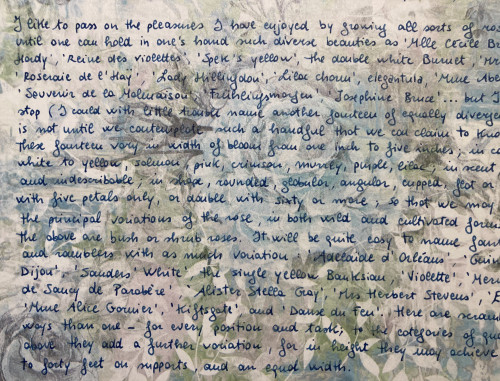 I like to pass on the pleasures I have enjoyed by growing all sorts of
until one can hold in one's hand such diverse beauties as 'Mlle Cécile
Hardy', 'Reine des Violettes', 'Spek's yellow', the double white Burnet,
'Roseraie de l'Hay', 'Lady Hillingdon', 'Lilac charm', elegantula,
'Souvenir de la Malmaison', 'Frühlingsmorgen', 'Josephine Bruce'... but
stop (I could with little trouble name another fourteen of equally
is not until we contemplate such a handful that we can claim to
These fourteen vary in width of bloom from one inch to five inches; in
white to yellow, salmon, pink, crimson, murrey, purple, lilac; in scent
and indescribable; in shape, rounded, globular, angular, cupped, flat or
with five petals only, or double with sixty or more; so that we may
the principal variations of the rose, in both wild and cultivated
the above are bush or shrub roses. It will be quite easy to name
and ramblers with as much variation: 'Adelaide d'Orléans',
Dijon', 'Sanders' White', the single yellow Banksian, 'Violette',
de Sancy de Parabère', 'Alister Stella Gray', 'Mrs Herbert Stevens',
'Mme Alice Garnier', 'Kiftsgate' and 'Danse du Feu'. Here are
ways than one – for every position and taste; to the categories of
above they add a further variation, for in height they may achieve
to forty feet on supports, and an equal width.